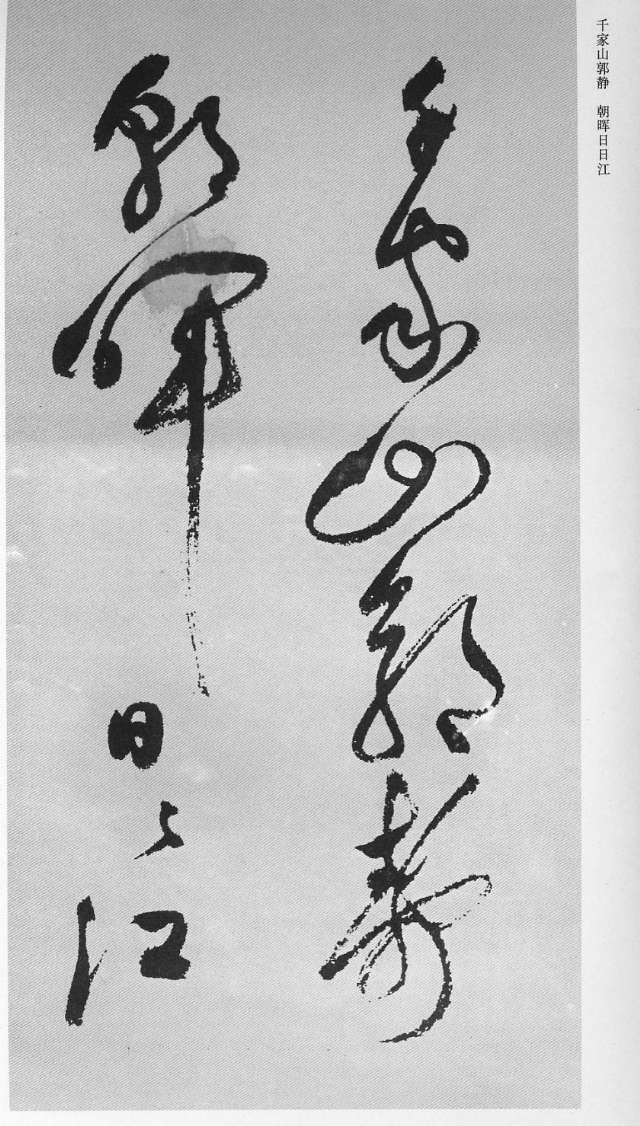 千家山郭静　朝晖日日江
千家山郭静
朝暉日々江